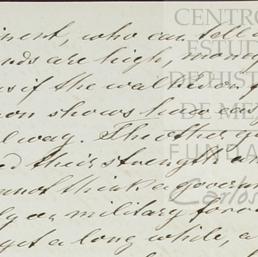 inent, who can tell
nds are high, mone
as if the walked on
on shows how easy
l way. The other
ed their strength an
annot think a governm
ly or military force
get a long while, a
CENTRO
ESTUD
DE HIST
DE ME
FUNDA
Carlos